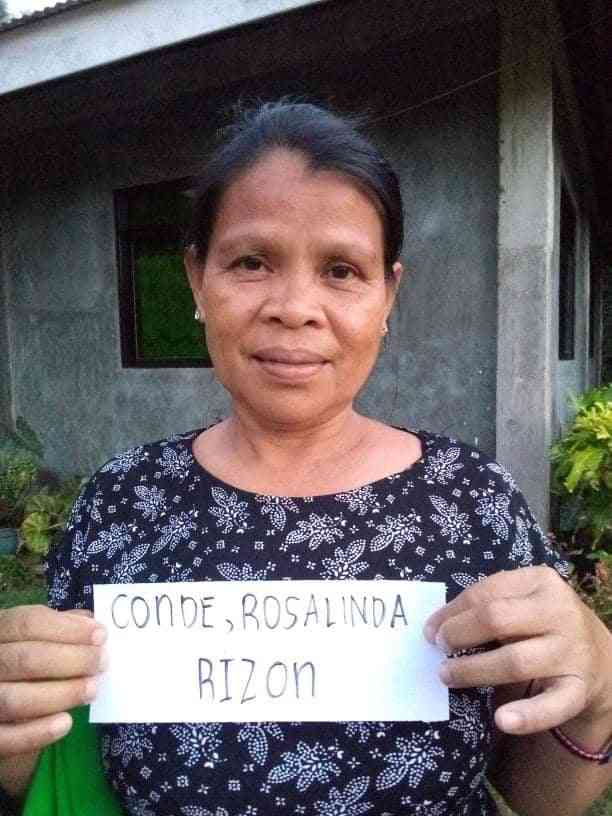 CONDE, ROSALINDA
RIZON